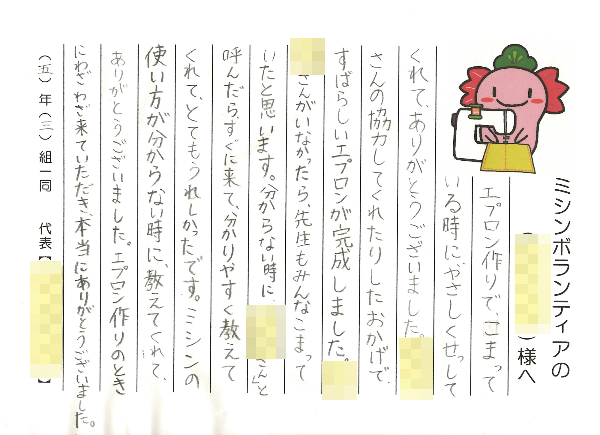 ミシンボランティアの
（　　）様へ
エプロン作りで、こまって
いる時に、やさしくせっして
くれて、ありがとうございました。
さんの協力してくれたりしたおかげで、
すばらしいエプロンが完成しました。
さんがいなかったら、先生もみんなこまって
いたと思います。分からない時に、「さん」と
呼んだら、すぐに来て、分かりやすく教えて
くれて、とてもうれしかったです。ミシンの
使い方が分からない時に、教えてくれて、
ありがとうございました。エプロン作りのとき
にわざわざ来ていただき、本当にありがとうございました。
（五）年（三）組一同　代表【　　】